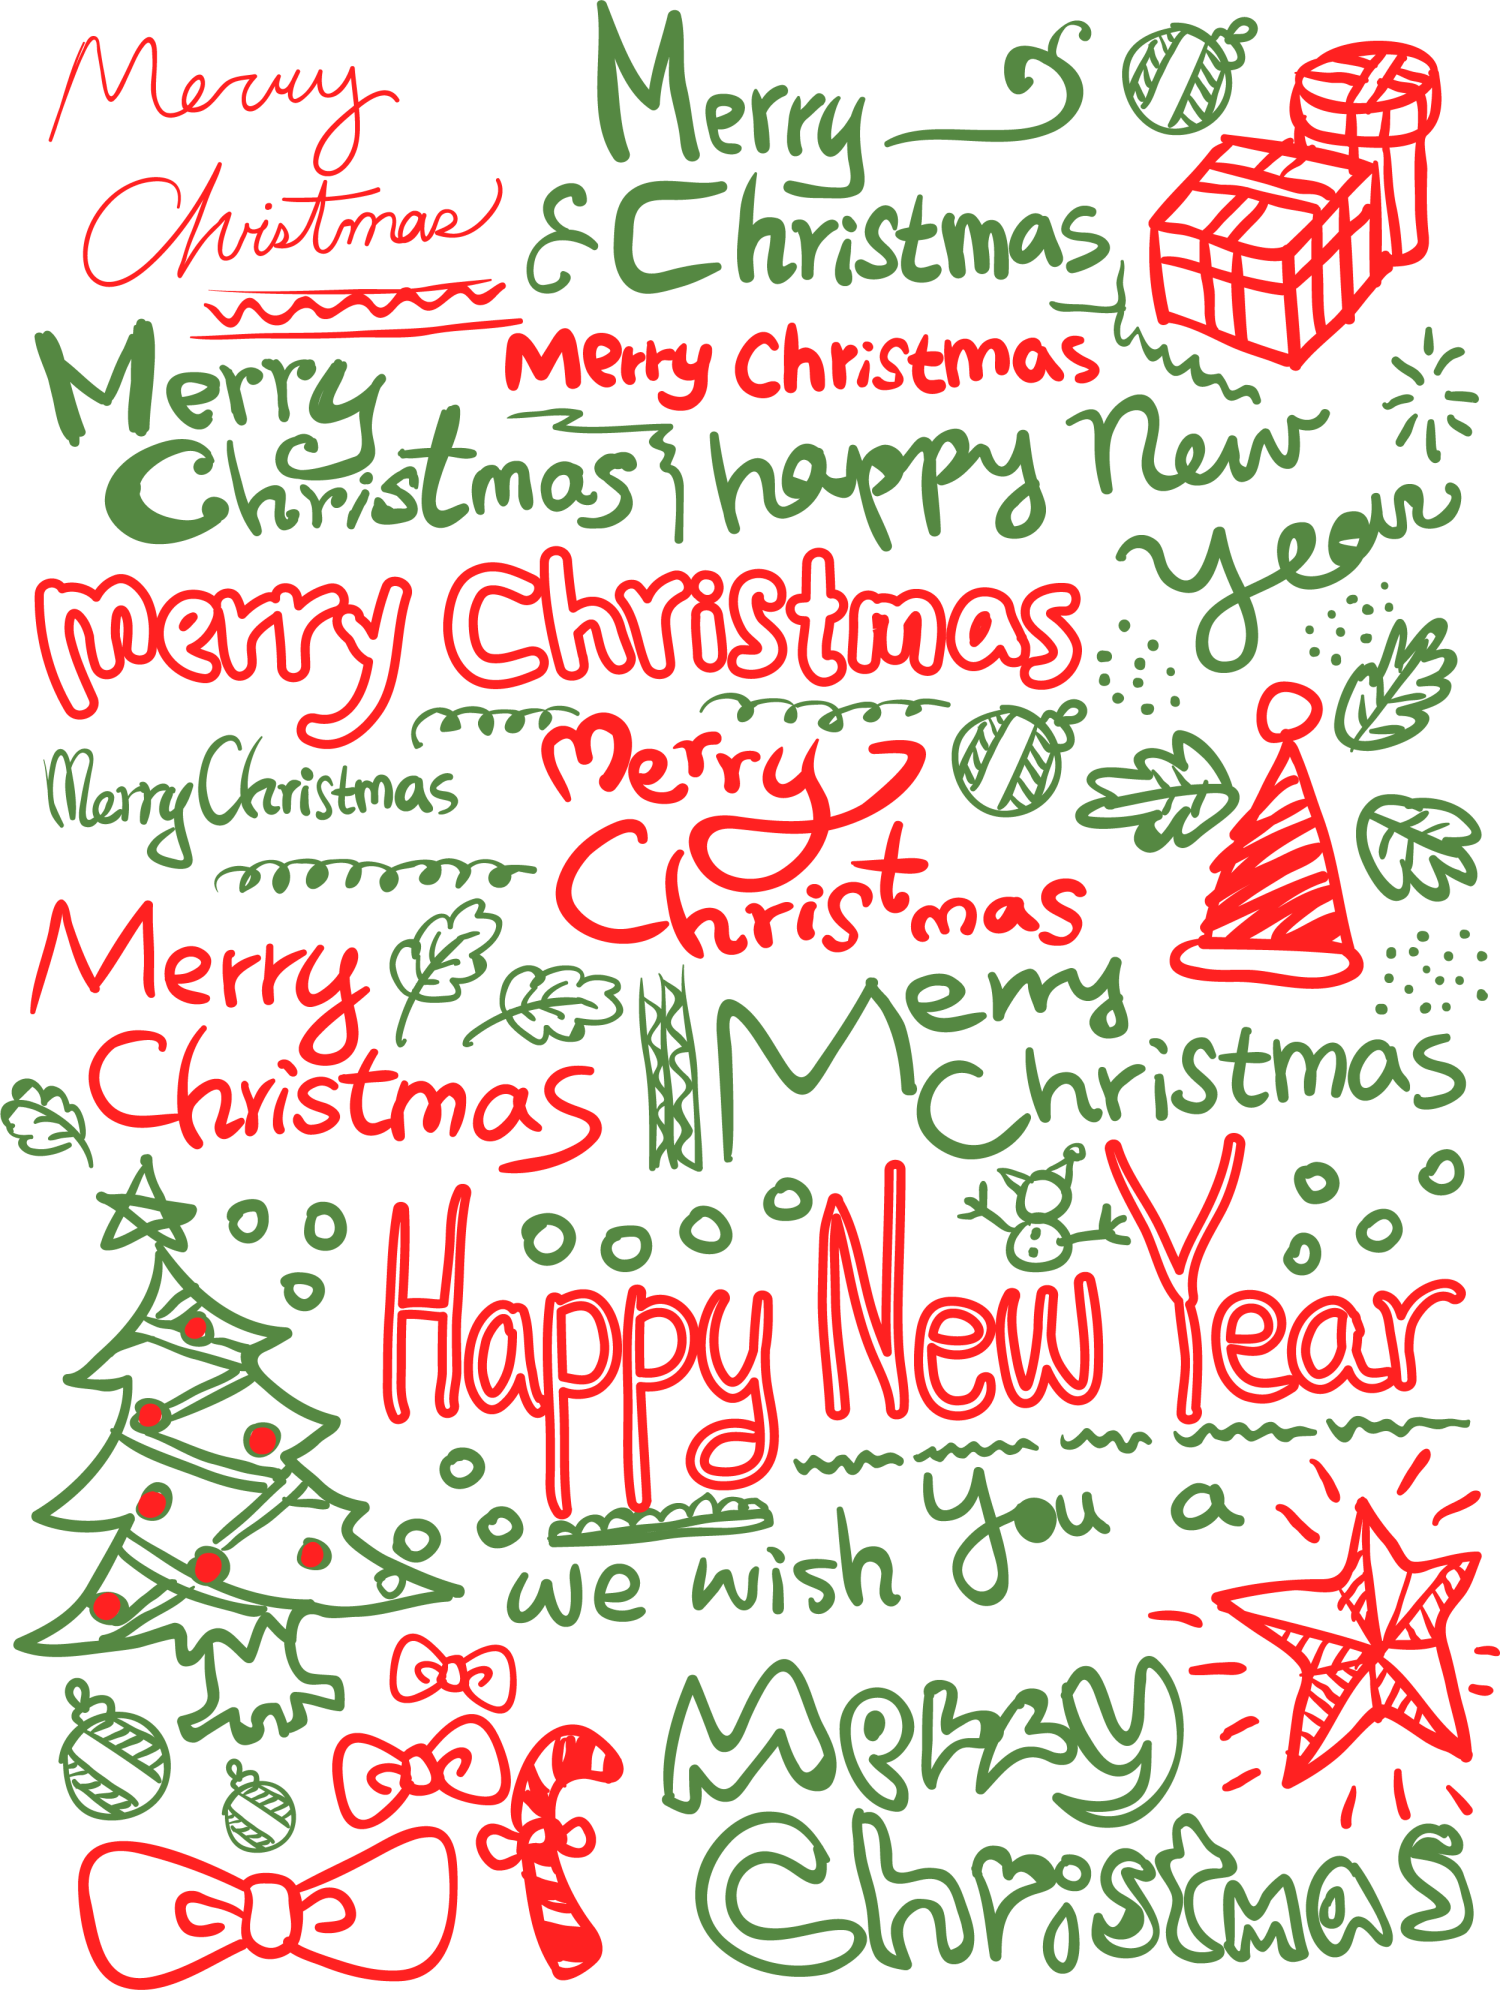 Merry
Christmas
Merry
& Christmas
Merry Christmas
Merry
Christmas
happy new
year
merry Christmas
Merry Christmas
Merry
Christmas
Merry
Christmas
Merry
Christmas
Happy New Year
we wish you a
Merry
Christmas